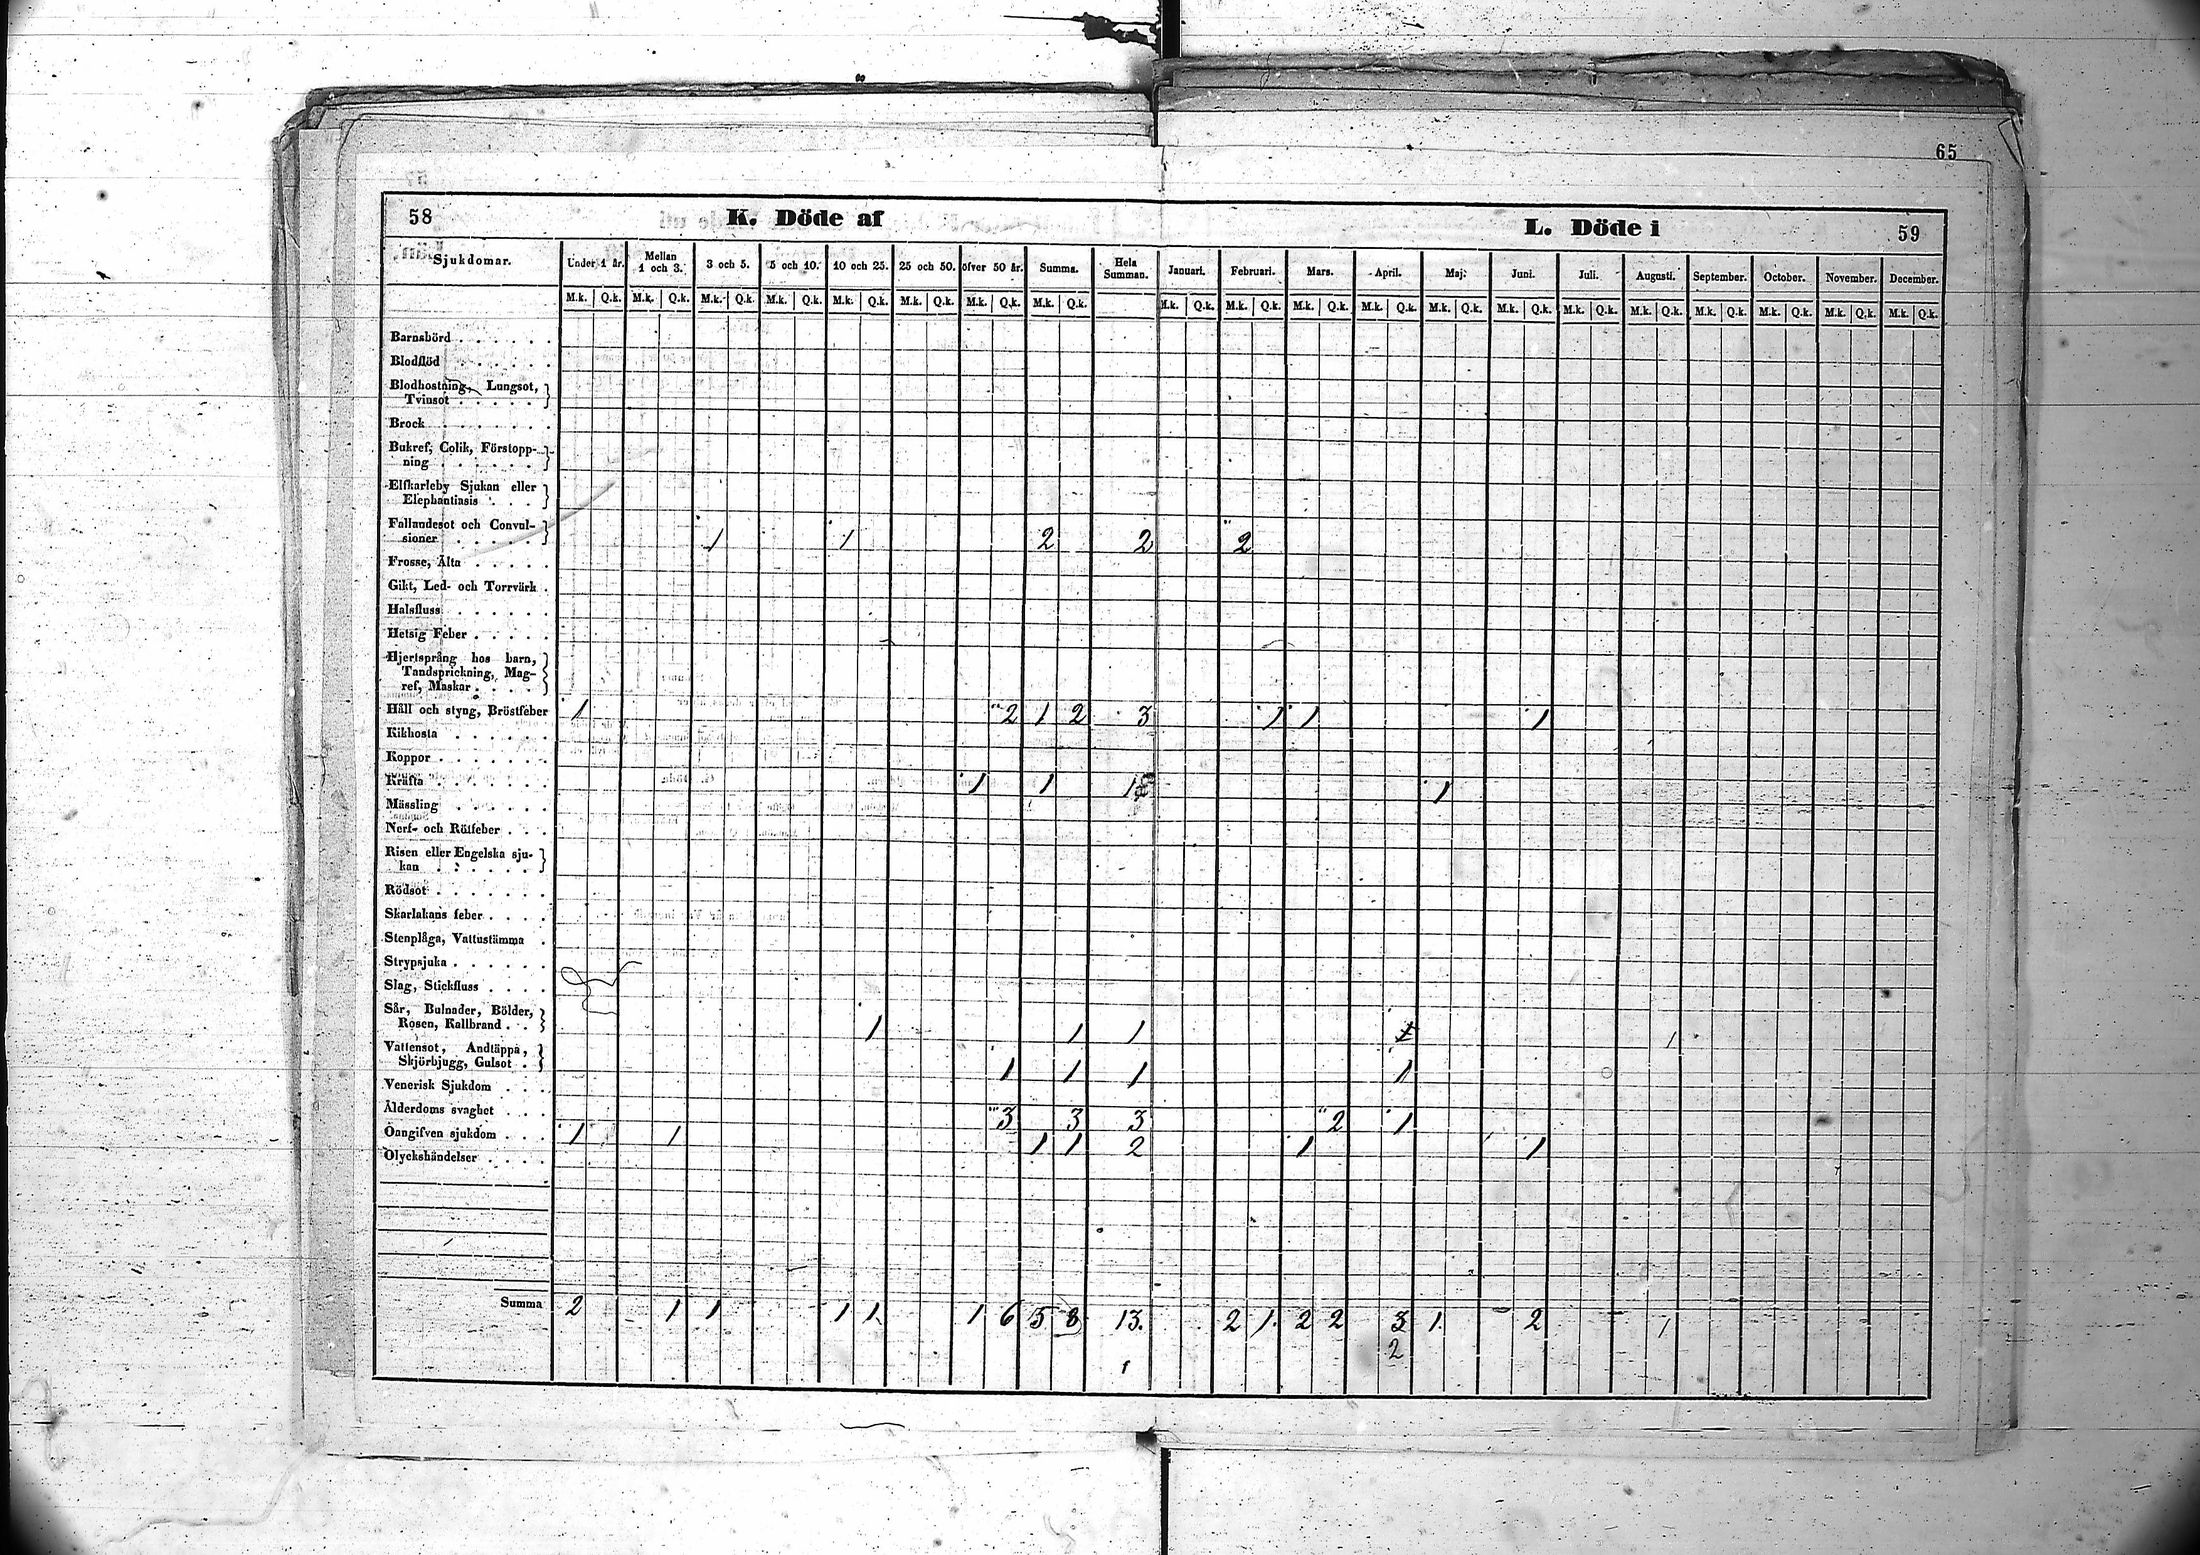 65
58 K. Döde af L. Döde i 59
Sjukdomar. Under 1 år. Mellan 1 och 3. 3 och 5. 5 och 10. 10 och 25. 25 och 50. öfver 50 år. Summa. Hela Summan. Januari. Februari. Mars. April. Maj. Juni. Juli. Augusti. September. October. November. December.
M.k. Q.k. M.k. Q.k. M.k. Q.k. M.k. Q.k. M.k. Q.k. M.k. Q.k. M.k. Q.k. M.k. Q.k. M.k. Q.k. M.k. Q.k. M.k. Q.k. M.k. Q.k. M.k. Q.k. M.k. Q.k. M.k. Q.k. M.k. Q.k. M.k. Q.k. M.k. Q.k. M.k. Q.k. M.k. Q.k.
Barnsbörd . . . . . .
Blodflöd . . . . . .
Blodhostning, Lungsot,
Tvinsot . . . . .
Brock . . . . . . .
Bukref, Colik, Förstopp-
ning . . . . . .
Elfkarleby Sjukan eller
Elephantiasis . . .
Fallandesot och Convul-
sioner . . . . . 1 1 2 2 2
Frosse, Älta . . . . .
Gikt, Led- och Torrvärk .
Halsfluss . . . . . .
Hetsig Feber . . . . .
Hjertsprång hos barn,
Tandsprickning, Mag-
ref, Maskar . . . .
Håll och styng, Bröstfeber 1 2 1 2 3 1 1 1
Kikhosta . . . . . .
Koppor . . . . . . .
Kräfta . . . . . . . 1 1 1 1
Mässling . . . . . .
Nerf- och Rötfeber . . .
Risen eller Engelska sju-
kan . . . . . .
Rödsot . . . . . . .
Skarlakans feber . . . .
Stenplåga, Vattustämma .
Strypsjuka . . . . . .
Slag, Stickfluss . . . .
Sår, Bulnader, Bölder,
Rosen, Kallbrand . . 1 1 1 1 1
Vattensot, Andtäppa,
Skjörbjugg, Gulsot . 1 1 1 1
Venerisk Sjukdom . . .
Ålderdoms svaghet . . . 3 3 3 2 1
Oangifven sjukdom . . . 1 1 1 1 2 1 1
Olyckshändelser . . . .
Summa 2 1 1 1 1 1 6 5 8 13. 2 1. 2 2 3 1. 2 1
2